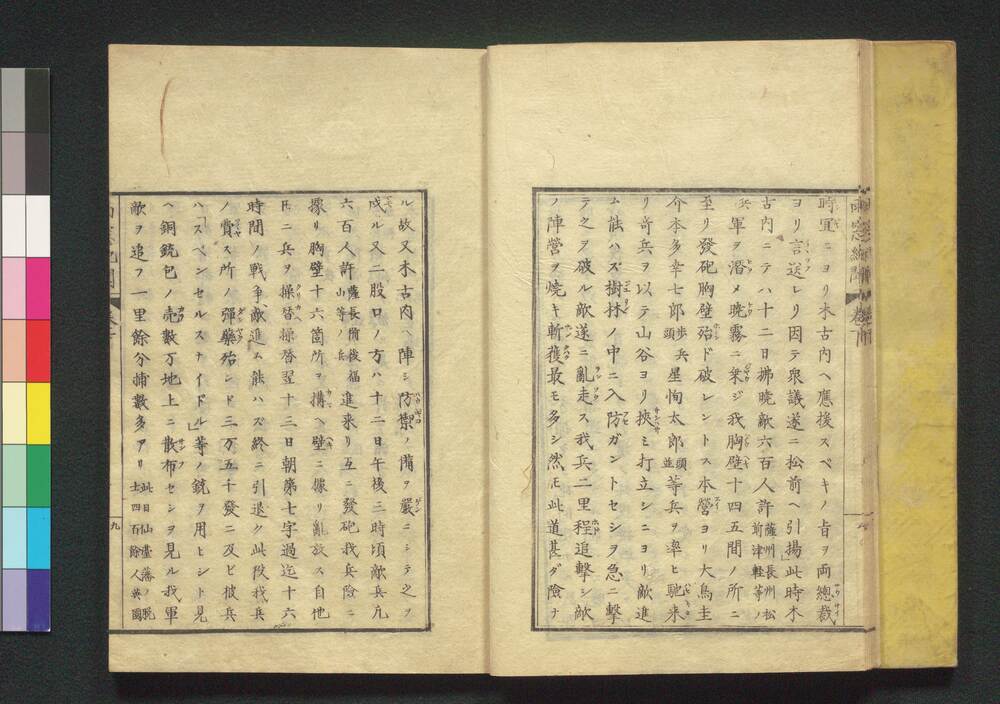 時宜ニヨリ木古内ヘ應後スベキノ旨ヲ両總裁
ヨリ言送レリ因テ衆議遂ニ松前ヘ引揚此時木
古内ニテハ十二日拂暁敵六百人許薩州長州松前津軽等ノ
兵軍ヲ潜メ暁霧ニ乗ジ我胸壁十四五間ノ所ニ
至リ發砲胸壁殆ド破レントス本營ヨリ大鳥圭
介本多幸七郎歩兵頭星恂太郎頭並等兵ヲ率ヒ馳来
リ奇兵ヲ以テ山谷ヨリ挾ミ打立シニヨリ敵進
ム能ハズ樹林ノ中ニ入防ガントセシヲ急ニ撃
テ之ヲ破ル敵遂ニ亂走ス我兵二里程追撃シ敵
ノ陣營ヲ焼キ斬獲最モ多シ然モ此道甚ダ險ナ
ル故又木古内ヘ陣シ防禦ノ備ヲ嚴ニシテ之ヲ
戍ル又二股口ノ方ハ十二日午後三時頃敵兵凡
六百人許薩長備後福山等ノ兵進来リ互ニ發砲我兵險ニ
據リ胸壁十六箇所ヲ搆ヘ壁ニ據リ亂放ス自他
トモニ兵ヲ操替操替翌十三日朝第七字過迄十六
時間ノ戦争敵進ム能ハズ終ニ引退ク此役我兵
ノ費ス所ノ彈藥殆ンド三万五千發ニ及ビ彼兵
ハ「スペンセルスナイドル」等ノ銃ヲ用ヒシト見
ヘ銅銃包ノ壳數万地上ニ散布センヲ見ル我軍
敵ヲ追フ一里餘分捕數多アリ此日仙臺藩ノ脱士四百餘人英國
九